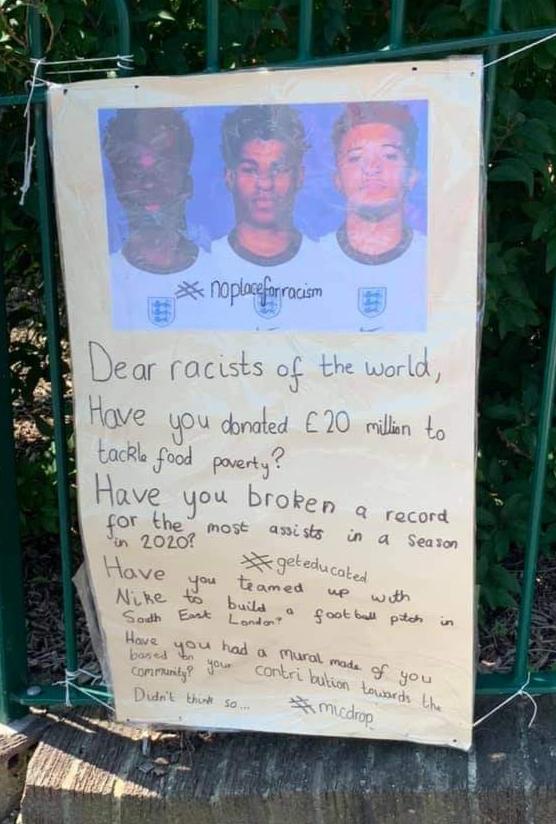 # noplaceforracism
Dear racists of the world,
Have you donated £20 million to
tackle food poverty?
Have you broken a record
for the most assists in a season
in 2020?
# geteducated
Have you teamed up with
Nike to build a football pitch in
South East London?
Have you had a mural made of you
based on your contribution towards the
community?
Didn't think so...
# micdrop